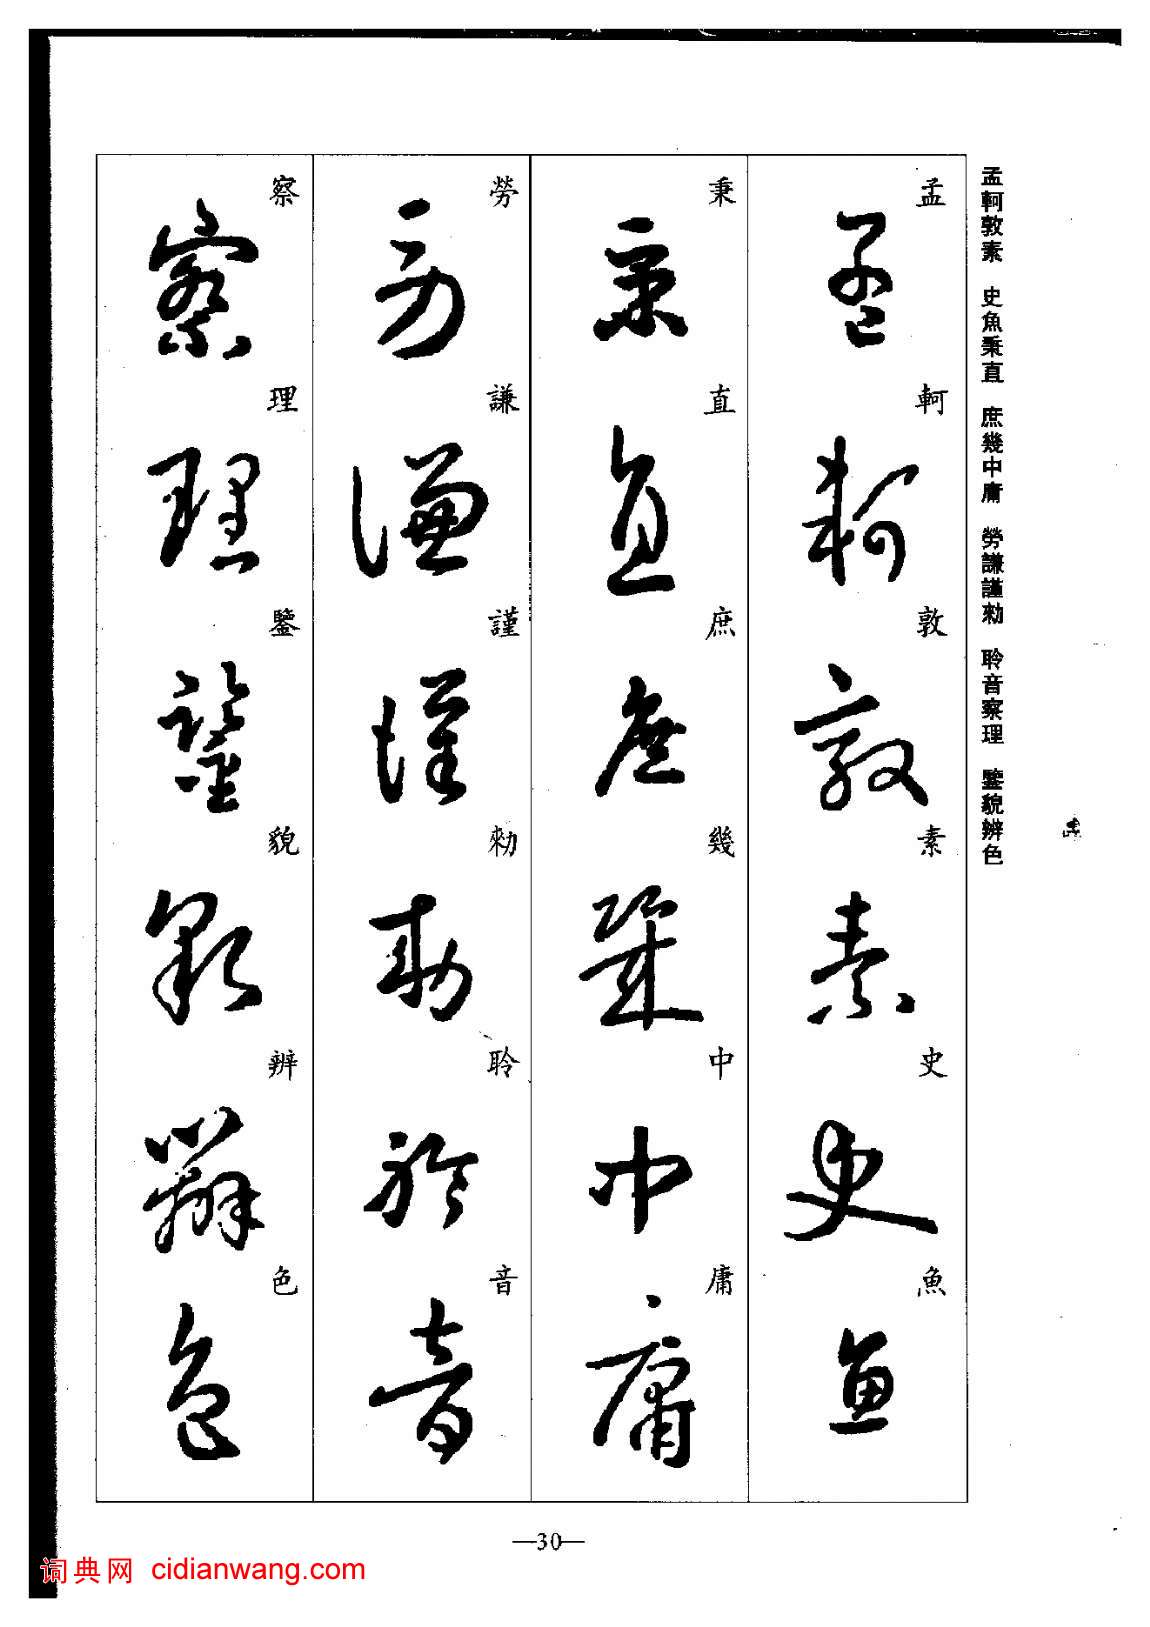 孟軻敦素 史魚秉直 庶幾中庸 勞謙謹勑 聆音察理 鑒貌辨色
孟軻敦素史魚
秉直庶幾中庸
勞謙謹勑聆音
察理鑒貌辨色
—30—
词典网 cidianwang.com